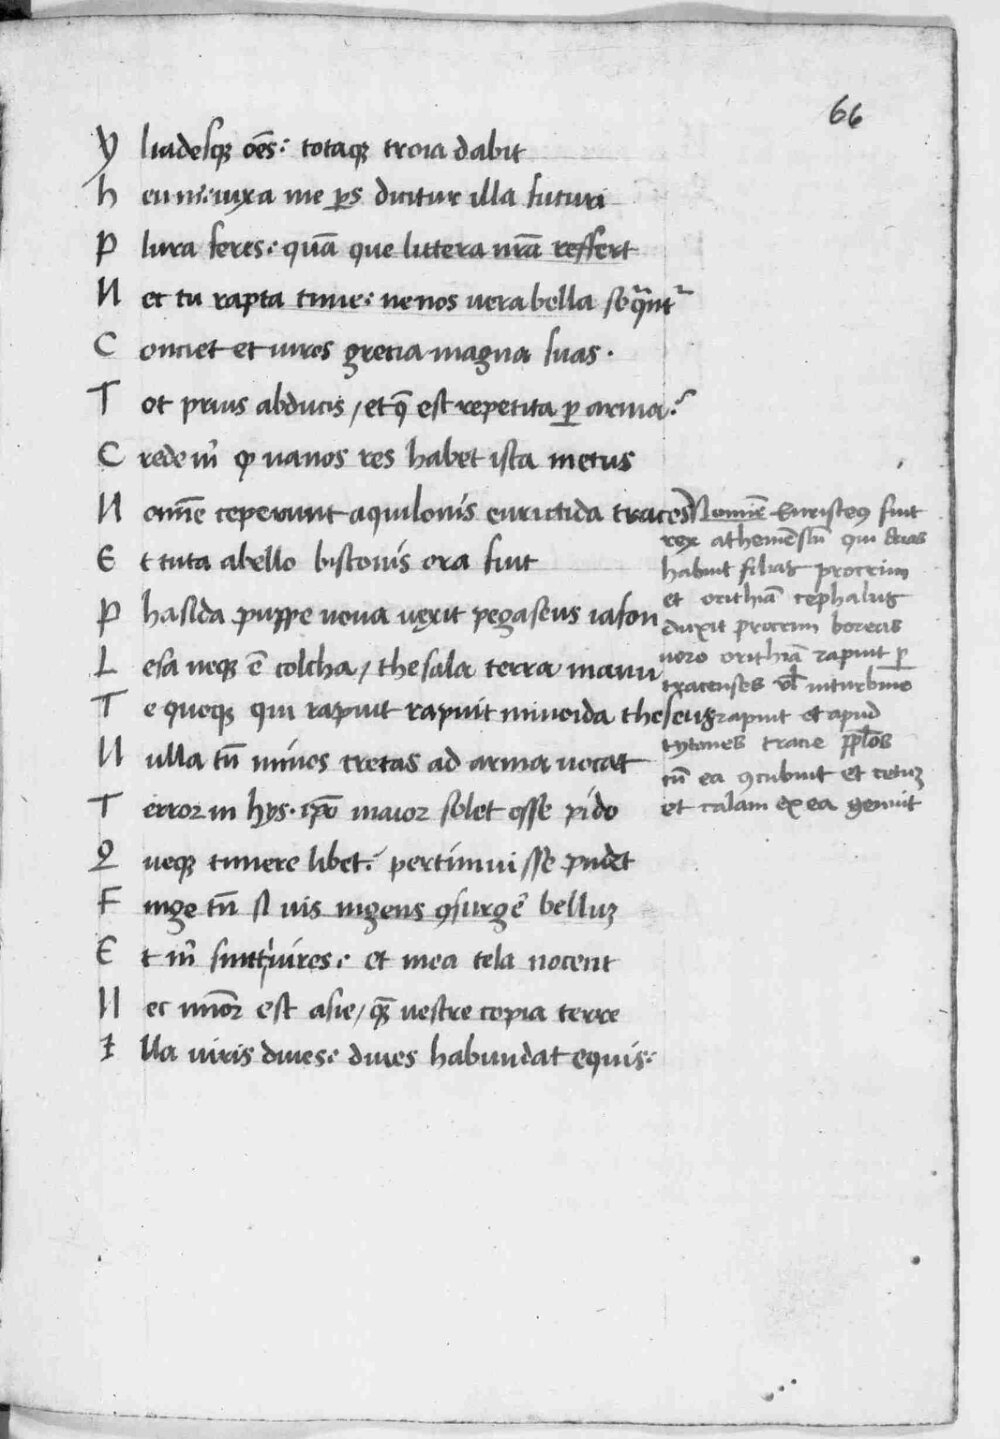 66
Y liadesqꝫ oēs: totaqꝫ troia dabit
H eu m: iuxa me ꝑs dicitur illa futuri
P lura feres: quā que littera nrā reffert
N et tu rapta time: ne nos uera bella seqūnt᷑
C onciet et uires grecia magna suas.
T ot prius abducis / et q̄ est repetita ꝑ arma:
C rede m̄ ꝙ uanos res habet ista metus
N omīe ceperunt aquilonis eurictida traces
E t tuta abello bistonis ora fuit
P hasida puppe noua uexit pegaseus iason
L esa neqꝫ ē colcha / thesala terra manu
T e quoqꝫ qui rapuit rapuit minoida theseus
N ulla tn̄ minos cretas ad arma uocat
T error in hys. ip̄o maior solet esse piclo
Q ueqꝫ timere libet: pertimui sse pudet
F inge tn̄ si uis ingens ꝯsurgē belluꝫ
E t m̄ sunt uires: et mea tela nocent
N ec minor est asie / q̄ uestre copia terre
I lla uiris diues: diues habundat equis:
Nomīe Euristeus fuit
rex atheniēsiū qui duas
habuit filias procrim
et orithiā cephalus
duxit procrim boreas
uero orithiā rapuit ꝑ
tracenses ul̄ inturbine
rapuit et apud
tytanes tracie ppl̄os
cū ea ꝯcubuit et cetuꝫ
et calam ex ea genuit